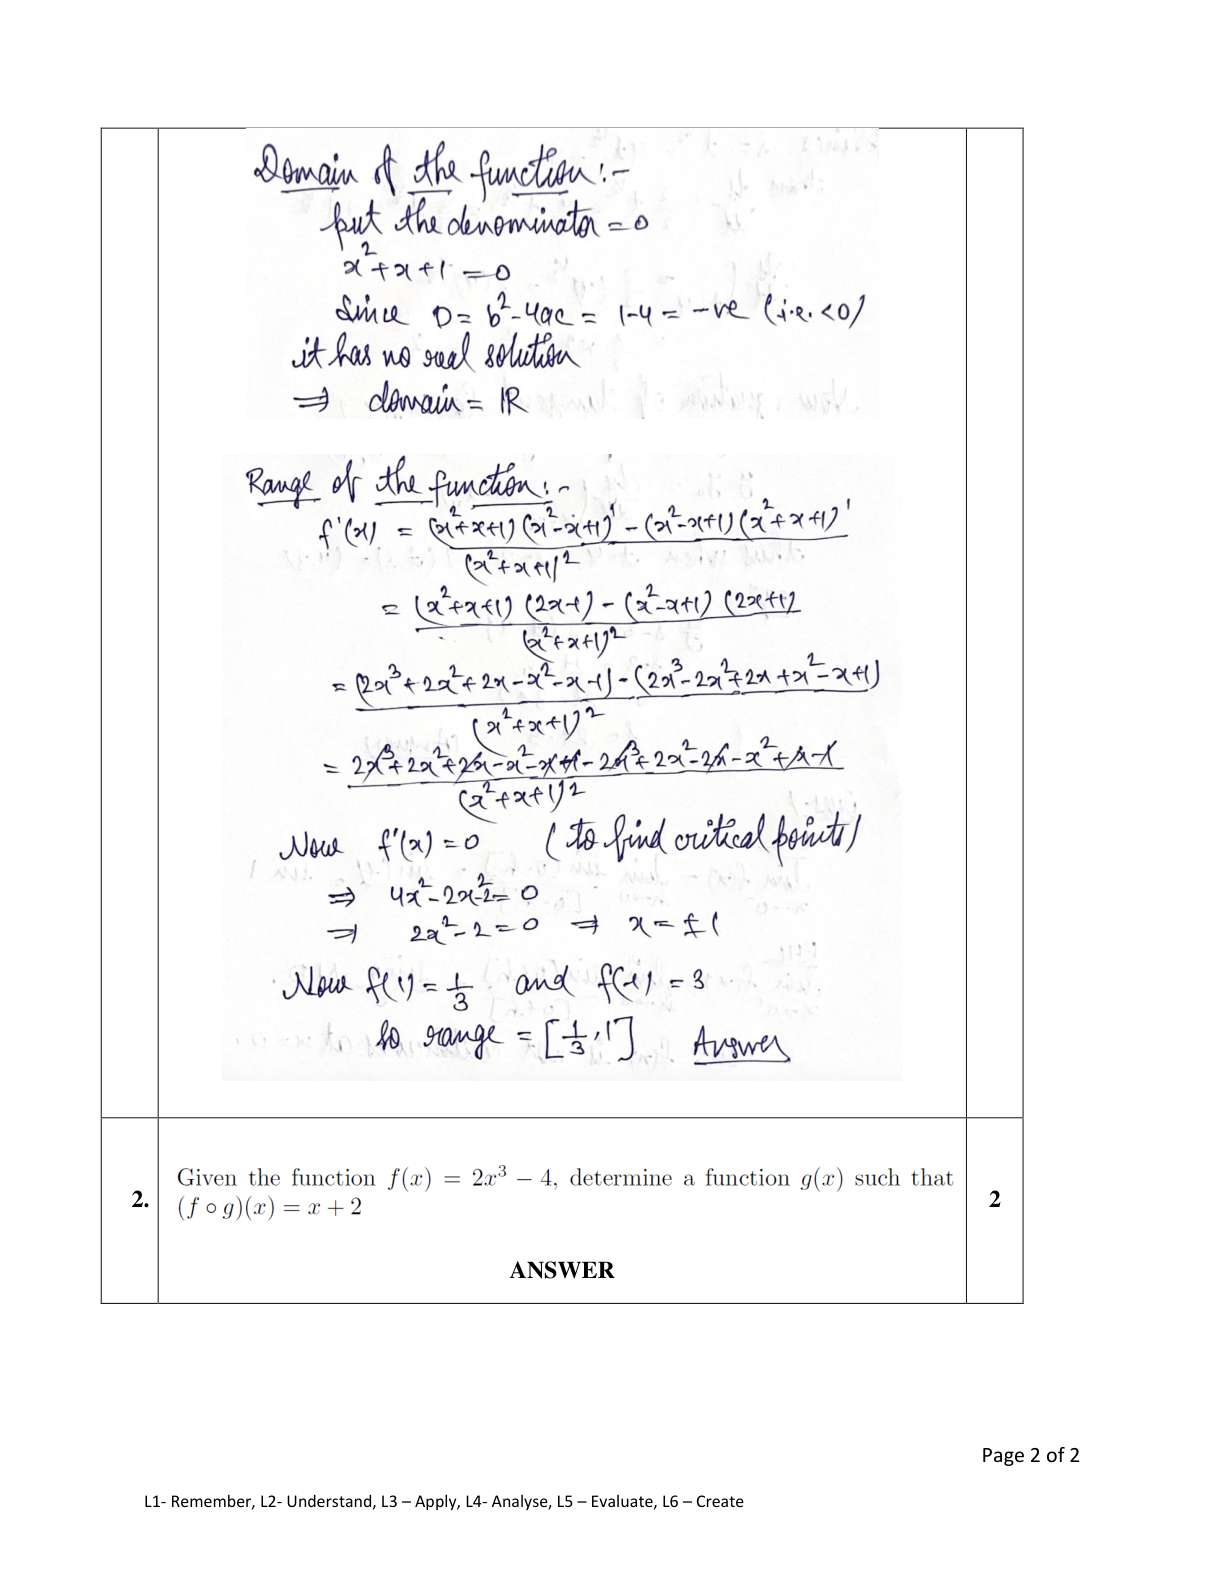 Domain of the function :-
put the denominator = 0
x²+x+1 = 0
Since D = b²-4ac = 1-4 = -ve (i.e. <0)
it has no real solution
⇒ domain = ℝ
Range of the function :-
f'(x) = (x²+x+1)(x²-x+1)' - (x²-x+1)(x²+x+1)'
(x²+x+1)²
= (x²+x+1)(2x-1) - (x²-x+1)(2x+1)
(x²+x+1)²
= (2x³+2x²+2x-x²-x-1) - (2x³-2x²+2x+x²-x+1)
(x²+x+1)²
= 2x³+2x²+2x-x²-x+1-2x³+2x²-2x-x²+x-1
(x²+x+1)²
Now f'(x) = 0 (to find critical points)
⇒ 4x²-2x²-2 = 0
⇒ 2x²-2 = 0 ⇒ x = ±1
Now f(1) = 1/3 and f(-1) = 3
so range = [1/3, 1] Answer
2.
Given the function f(x) = 2x³ − 4, determine a function g(x) such that
(f ∘ g)(x) = x + 2
2
ANSWER
Page 2 of 2
L1- Remember, L2- Understand, L3 – Apply, L4- Analyse, L5 – Evaluate, L6 – Create